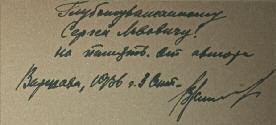 Глубокоуважаемому
Сергею Львовичу
на память от автора
Варшава, 1936 г. 8 Сент.